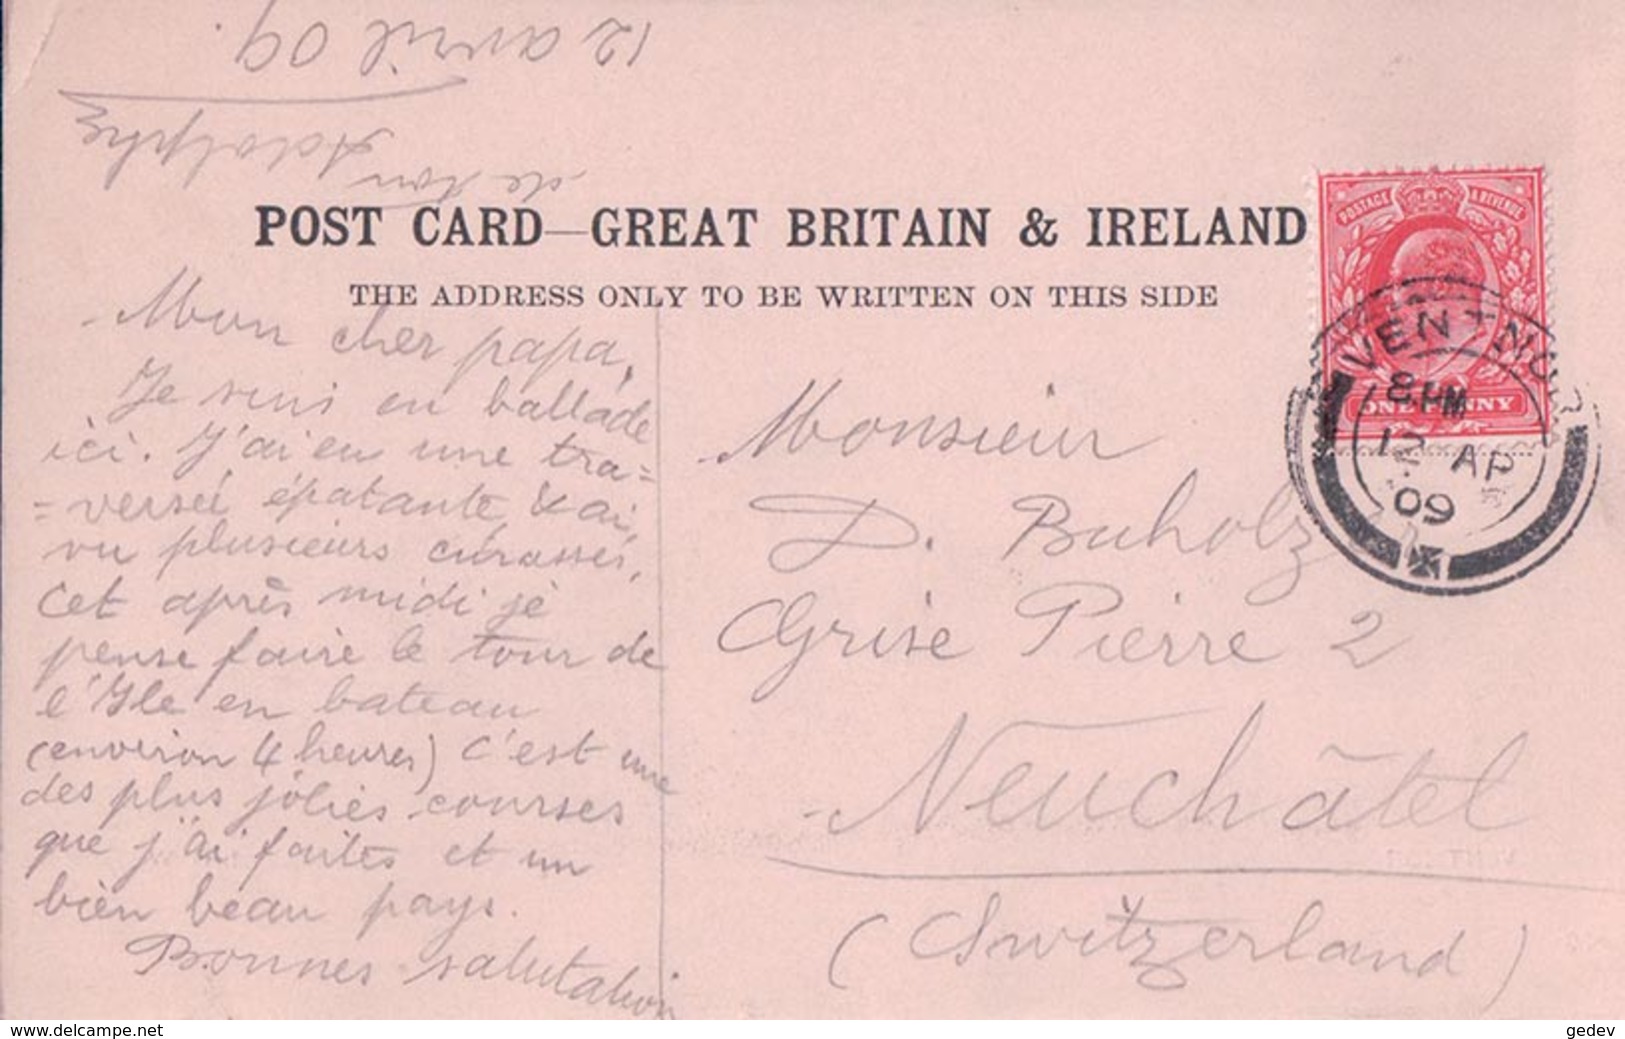 12 avril 09.
de ton
Adolphe
POST CARD—GREAT BRITAIN & IRELAND
THE ADDRESS ONLY TO BE WRITTEN ON THIS SIDE
Mon cher papa,
Je suis en ballade
ici. J'ai eu une tra=
=versée épatante & ai
vu plusieurs cuirassés,
cet après midi je
pense faire le tour de
l'Ile en bateau
(environ 4 heures) C'est une
des plus jolies courses
que j'ai faites et un
bien beau pays.
Bonnes salutations
Monsieur
D. Buholz
Grise Pierre 2
Neuchâtel
(Switzerland)
POSTAGE & REVENUE
ONE PENNY
VENTNOR
8 PM
12 AP
09
www.delcampe.net
gedev